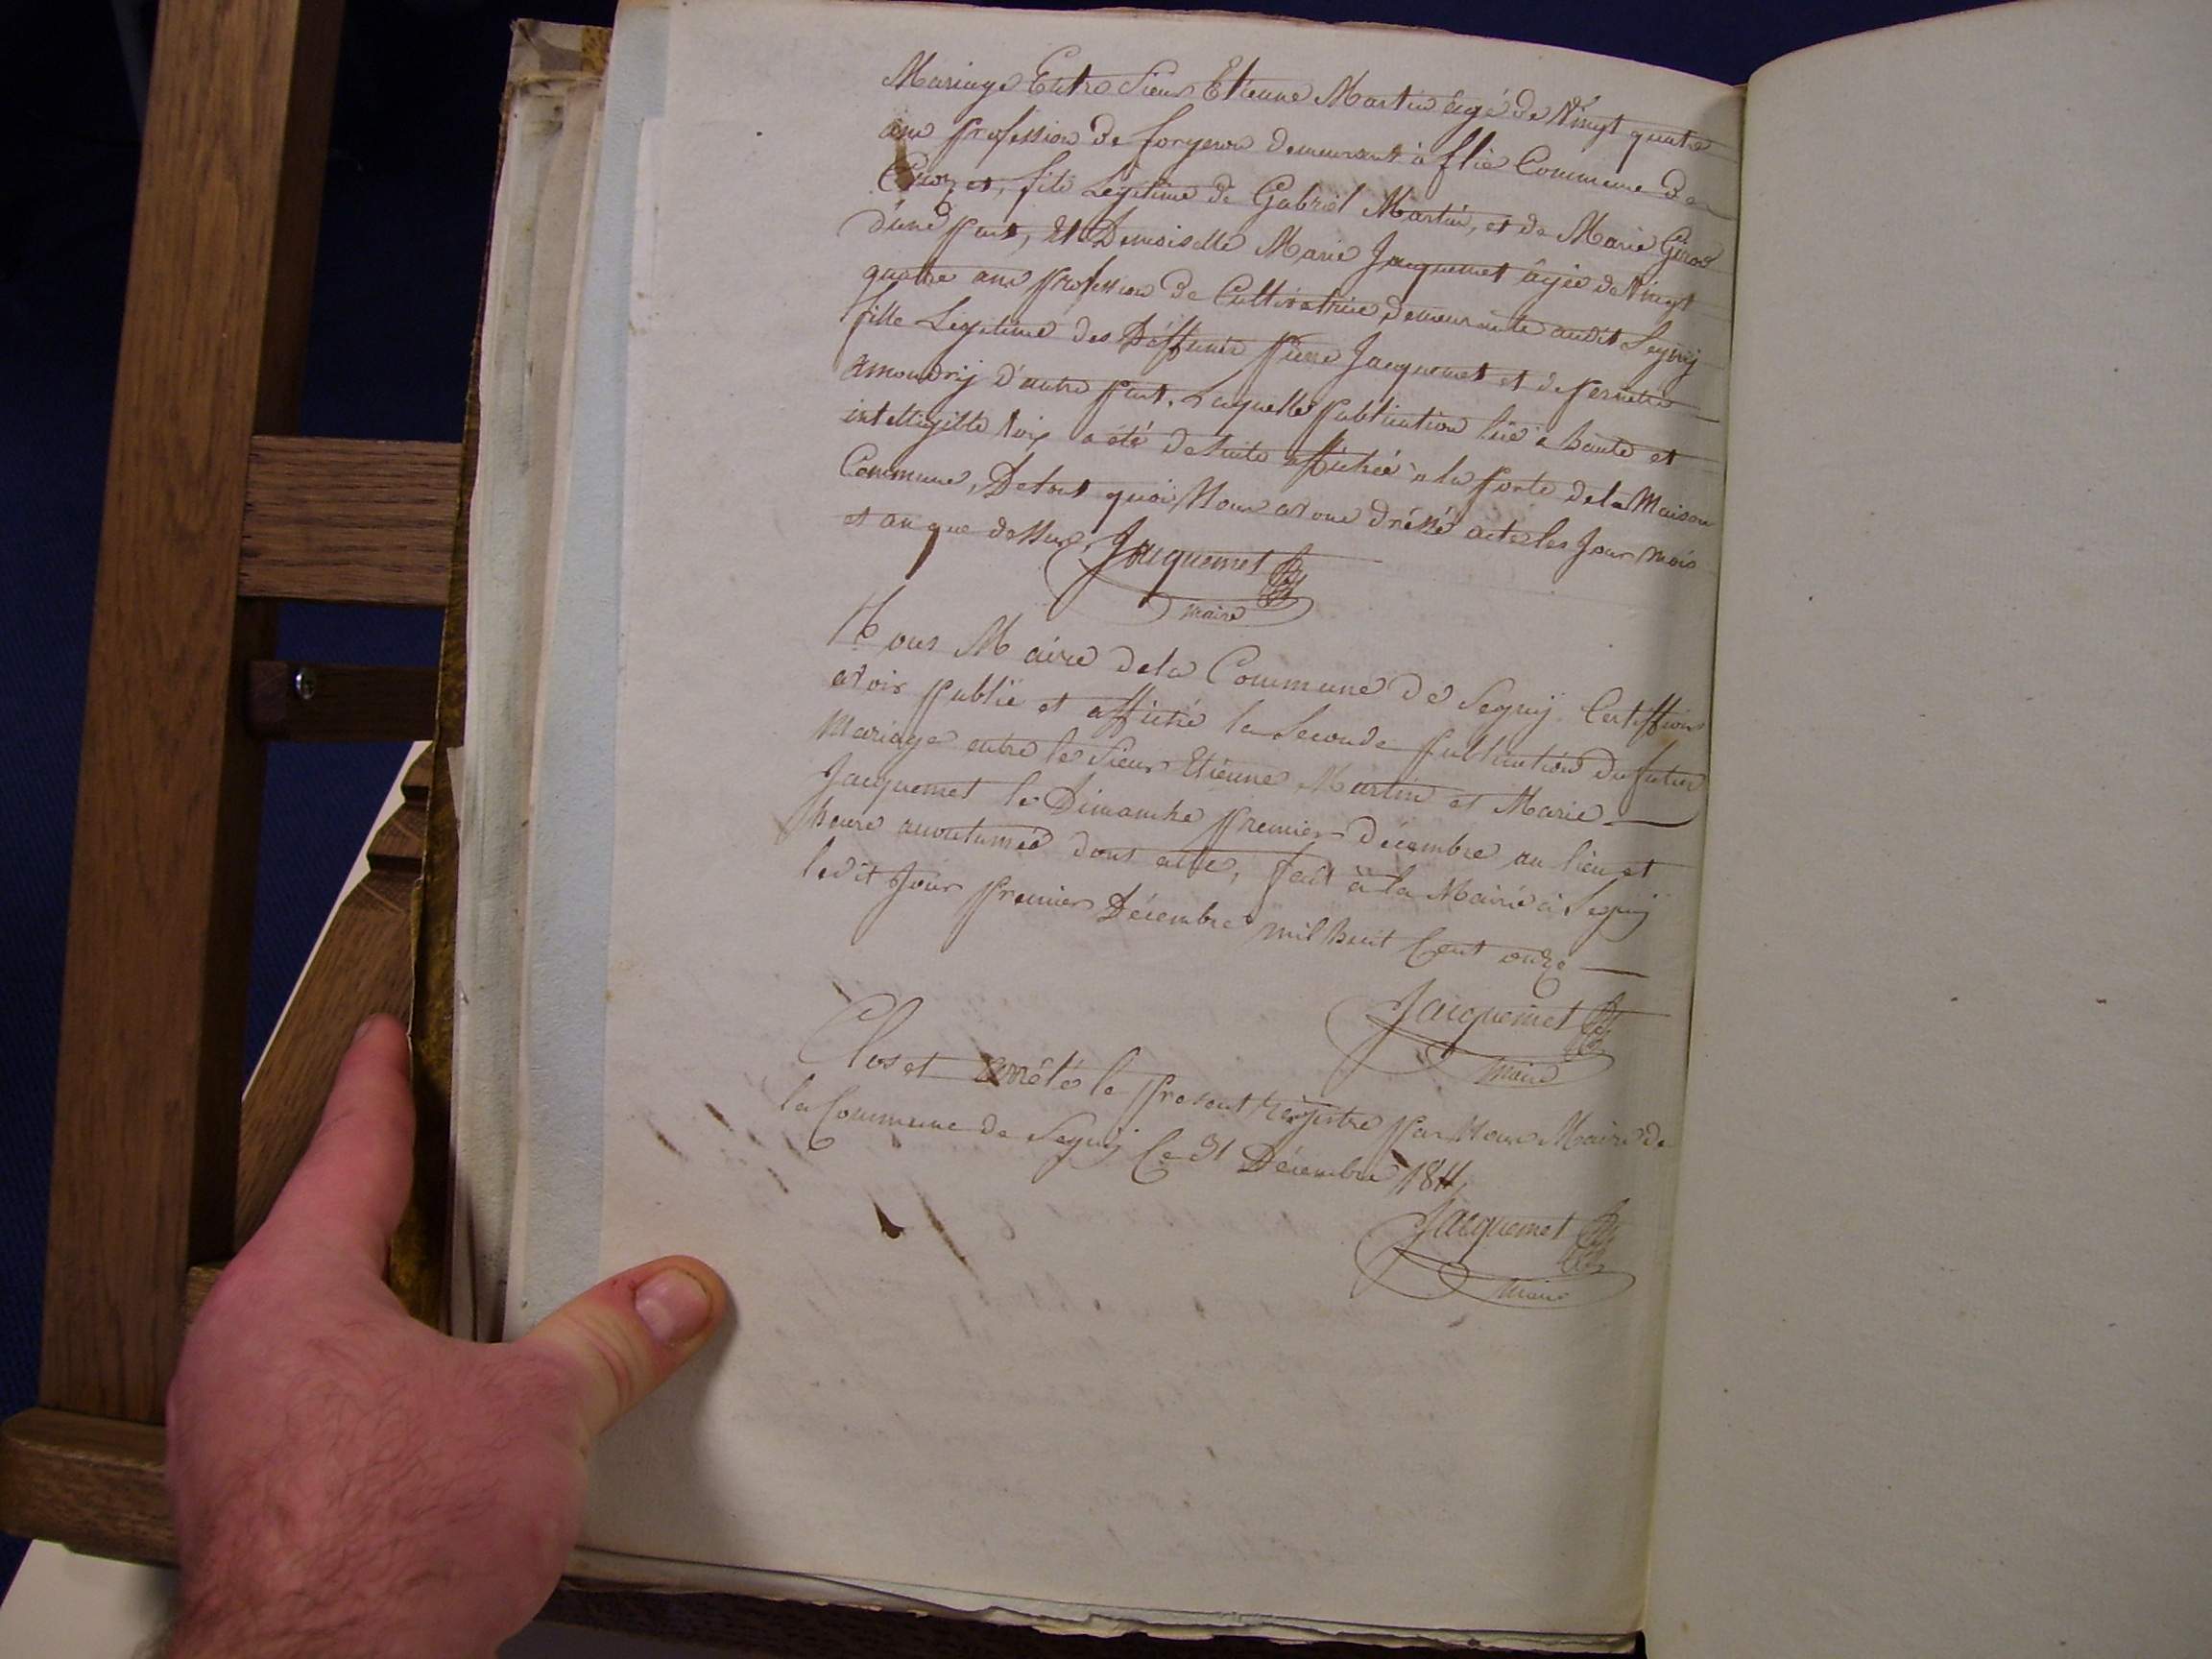 Mariage Entre Sieur Etienne Martin âgé de Vingt quatre
ans profession de forgeron demeurant à flie Commune de
Crozet, fils Légitime de Gabriël Martin, et de Marie Girod
d'une part, Et Demoiselle Marie Jacquemet âgée de Vingt
quatre ans profession de Cultivatrice, demeurante audit Segny
fille Légitime des Déffunts Pierre Jacquemet et de Pernette
Amoudry d'autre part. Laquelle publication lüe à haute et
intelligible Voix a été de Suite affichée à la porte de la Maison
Commune, De tout quoi Nous avons dréssé acte les Jour mois
et an que dessus. Jacquemet
maire
Nous Maire de la Commune de Segny Certiffions
avoir publié et affiché la Seconde publication du futur
Mariage entre le Sieur Etienne Martin et Marie
Jacquemet le Dimanche premier décembre au lieu et
heure accoutumée dont acte, fait à la Mairie à Segny
ledit Jour premier Décembre mil huit Cent onze
Jacquemet
maire
Clos et arrêté le présent régistre par Nous Maire de
la Commune de Segny Ce 31 Décembre 1811,
Jacquemet
Maire